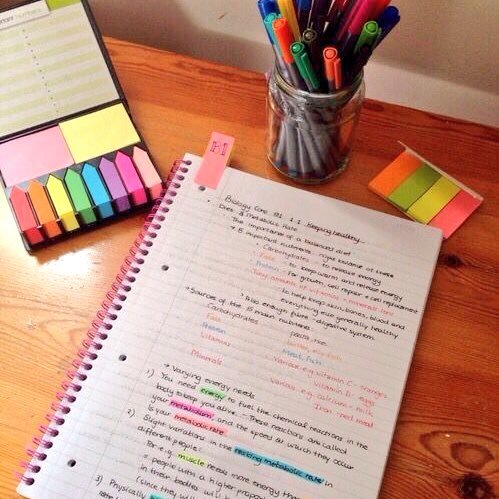 B1
Biology Core B1 1.1 Keeping healthy
Diet & Metabolic Rate
The importance of a balanced diet
5 important nutrients - right balance of these
Carbohydrates - to release energy
Fats - to keep warm and release energy
Protein - for growth, cell repair & cell replacement
Tiny amounts of vitamins & mineral ions
- to help keep skin, bones, blood and
everything else generally healthy
Also enough fibre - digestive system
Sources of the 5 main substances:
Carbohydrates pasta, rice
Fats
Protein Meat, fish
Vitamins Various e.g. vitamin C - oranges
vitamin D - eggs
Minerals Various e.g. calcium - milk
Iron - red meat
Varying energy needs
1) You need energy to fuel the chemical reactions in the
body to keep you alive. These reactions are called
your metabolism, and the speed at which they occur
is your metabolic rate
2) Slight variations in the resting metabolic rate in
different people:
For e.g. muscle needs more energy than
= people with a higher
in their bodies will
(since they will
3) Physically